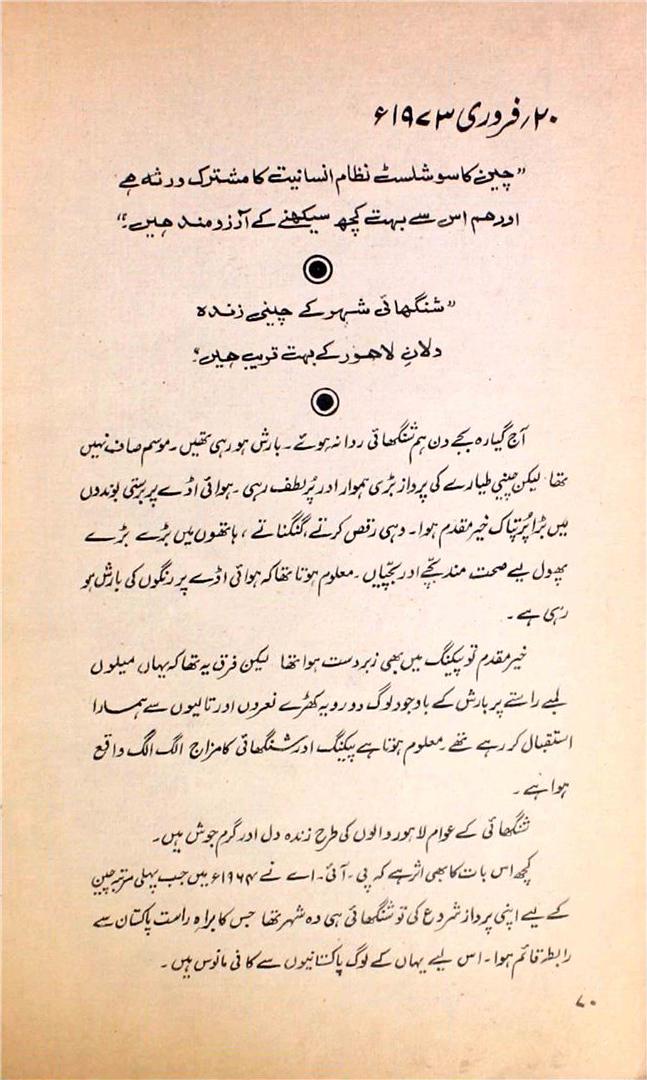 ۲۰؍فروری ۱۹۷۳ء
”چین کا سوشلسٹ نظام انسانیت کا مشترک ورثہ ہے
اور ہم اس سے بہت کچھ سیکھنے کے آرزومند ہیں۔“
”شنگھائی شہر کے چینی زندہ
دلانِ لاہور کے بہت قریب ہیں۔“
آج گیارہ بجے دن ہم شنگھائی روانہ ہوئے۔ بارش ہو رہی تھیں۔ موسم صاف نہیں
تھا لیکن چینی طیارے کی پرواز بڑی ہموار اور پُرلطف رہی۔ ہوائی اڈے پر برستی بوندوں
میں بڑا پُرتپاک خیرمقدم ہوا۔ وہی رقص کرتے، گنگناتے، ہاتھوں میں بڑے بڑے
پھول لیے صحت مند بچّے اور بچّیاں۔ معلوم ہوتا تھا کہ ہوائی اڈے پر رنگوں کی بارش ہو
رہی ہے۔
خیرمقدم تو پیکنگ میں بھی زبردست ہوا تھا لیکن فرق یہ تھا کہ یہاں میلوں
لمبے راستے پر بارش کے باوجود لوگ دو رویہ کھڑے نعروں اور تالیوں سے ہمارا
استقبال کر رہے تھے۔ معلوم ہوتا ہے پیکنگ اور شنگھائی کا مزاج الگ الگ واقع
ہوا ہے۔
شنگھائی کے عوام لاہور والوں کی طرح زندہ دل اور گرم جوش ہیں۔
کچھ اس بات کا بھی اثر ہے کہ پی۔ آئی۔ اے نے ۱۹۶۴ء میں جب پہلی مرتبہ چین
کے لیے اپنی پرواز شروع کی تو شنگھائی ہی وہ شہر تھا جس کا براہ راست پاکستان سے
رابطہ قائم ہوا۔ اس لیے یہاں کے لوگ پاکستانیوں سے کافی مانوس ہیں۔
۷۰